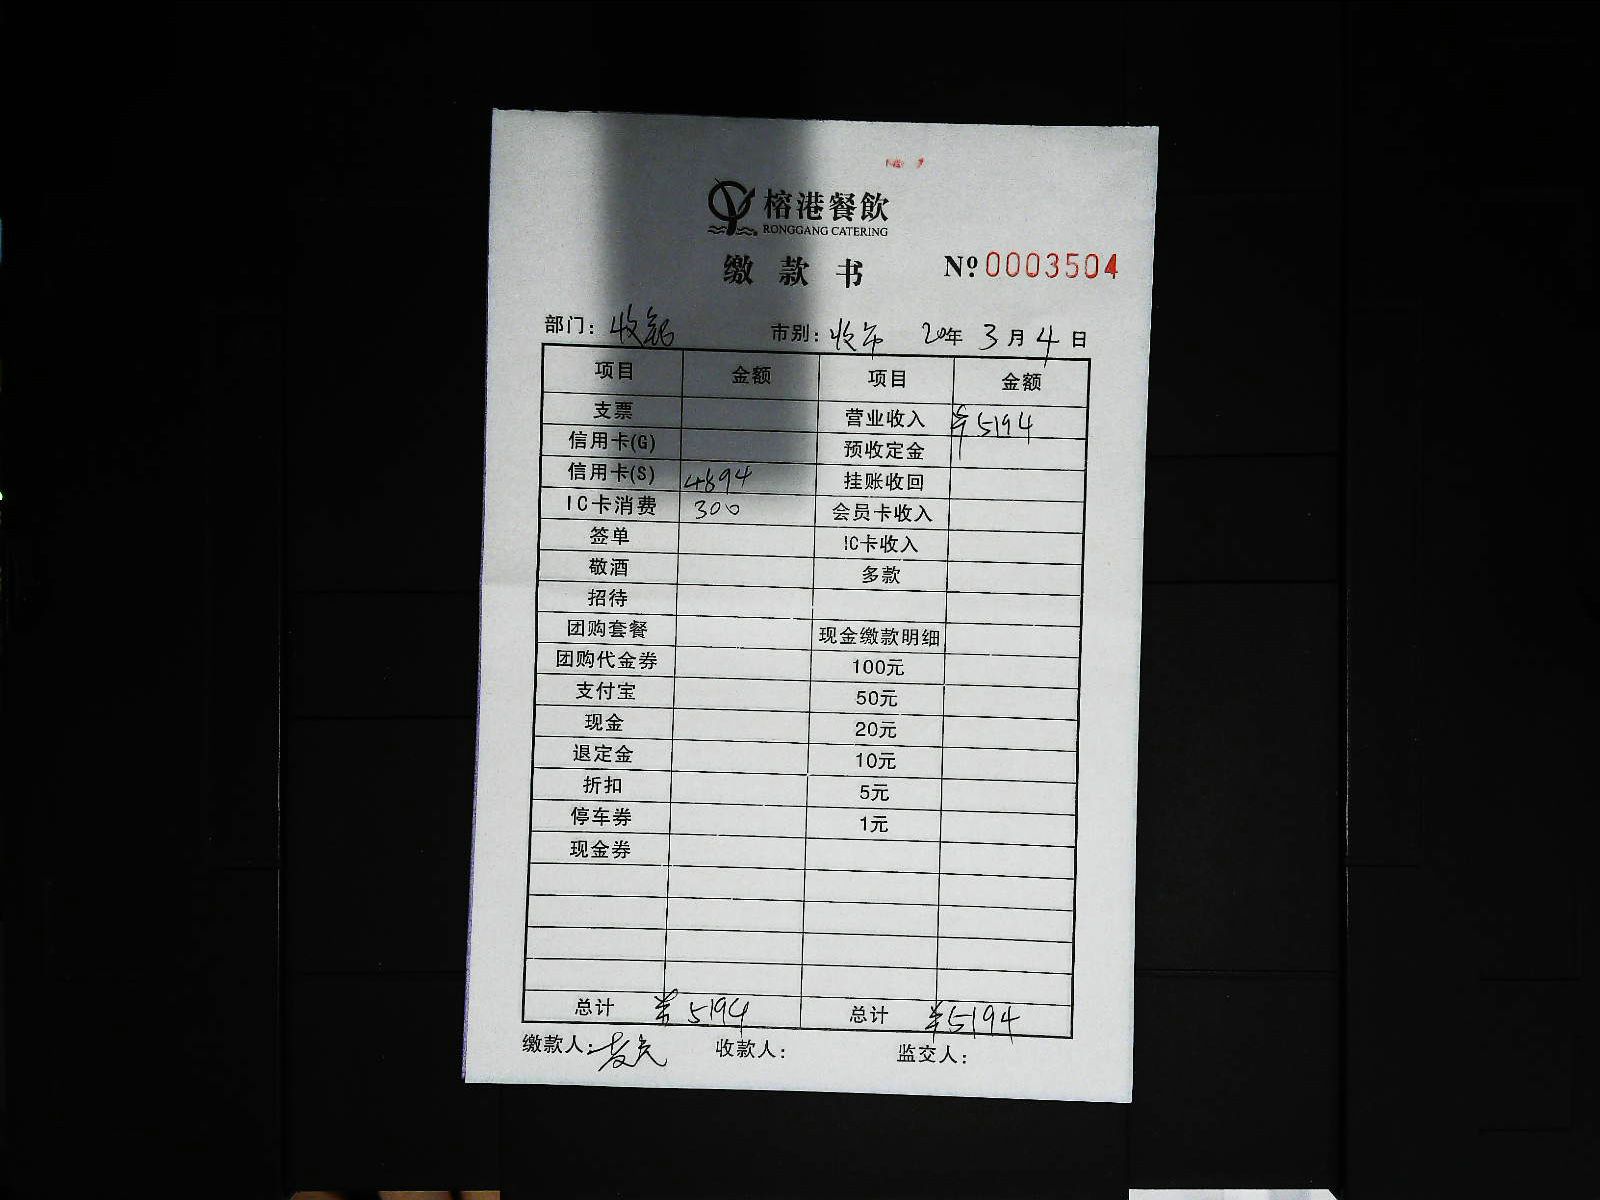 榕港餐飲
RONGGANG CATERING
缴款书 Nº 0003504
部门: 收银 市别: 收市 20年 3月 4日
项目 金额 项目 金额
支票 营业收入 ¥5194
信用卡(G) 预收定金
信用卡(S) 4894 挂账收回
IC卡消费 300 会员卡收入
签单 IC卡收入
敬酒 多款
招待
团购套餐 现金缴款明细
团购代金券 100元
支付宝 50元
现金 20元
退定金 10元
折扣 5元
停车券 1元
现金券
总计 ¥5194 总计 ¥5194
缴款人: 收款人: 监交人: